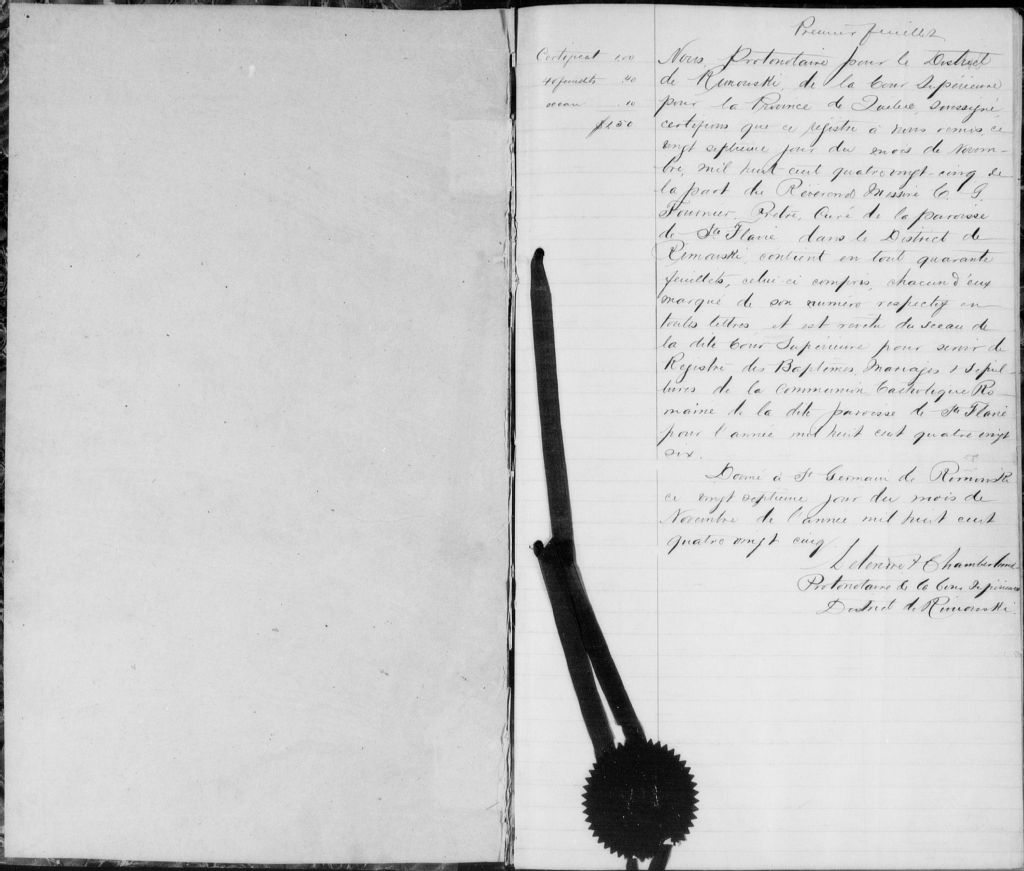 Premier feuillet
Certificat 1.00
40 feuillets .40
sceau .10
$1.50
Nous, Protonotaire pour le District
de Rimouski, de la Cour Supérieure
pour la Province de Québec, soussigné,
certifions que ce régistre à nous remis, ce
vingt septième jour du mois de Novem-
bre, mil huit cent quatre vingt-cinq de
la part du Révérend Messire C. G.
Fournier, Prêtre, Curé de la paroisse
de Ste Flavie dans le District de
Rimouski, contient en tout quarante
feuillets, celui-ci compris, chacun d'eux
marqué de son numéro respectif en
toutes lettres, et est revêtu du sceau de
la dite Cour Supérieure pour servir de
Régistre des Baptêmes, Mariages & Sépul-
tures de la Communion Catholique Ro-
maine de la dite paroisse de Ste Flavie
pour l'année mil huit cent quatre vingt
six.
Donné à St Germain de Rimouski
ce vingt septième jour du mois de
Novembre de l'année mil huit cent
quatre vingt cinq
Letendre & Chamberland
Protonotaire de la Cour Supérieure
District de Rimouski